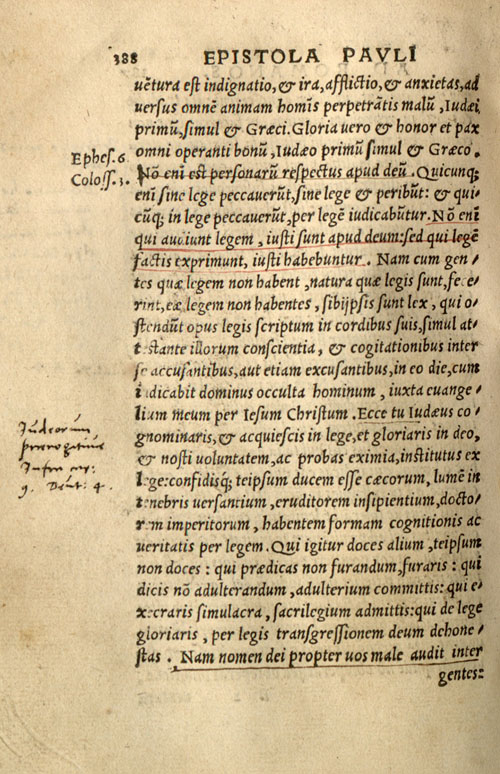 388 EPISTOLA PAVLI
uētura est indignatio, & ira, afflictio, & anxietas, ad
uersus omnē animam homīs perpetrātis malū, Iudæi
primū, simul & Græci. Gloria uero & honor et pax
omni operanti bonū, Iudæo primū simul & Græco.
Ephes. 6.
Coloss. 3.
Nō enī est personarū respectus apud deū. Quicunq;
enī sine lege peccauerūt, sine lege & peribūt: & qui-
cūq; in lege peccauerūt, per legē iudicabūtur. Nō enī
qui audiunt legem, iusti sunt apud deum: sed qui legē
factis exprimunt, iusti habebuntur. Nam cum gen-
tes quæ legem non habent, natura quæ legis sunt, fece-
rint, eæ legem non habentes, sibijpsis sunt lex, qui o-
stendūt opus legis scriptum in cordibus suis, simul at-
testante illorum conscientia, & cogitationibus inter
se accusantibus, aut etiam excusantibus, in eo die, cum
iudicabit dominus occulta hominum, iuxta euange-
lium meum per Iesum Christum. Ecce tu Iudæus co-
gnominaris, & acquiescis in lege, et gloriaris in deo,
& nosti uoluntatem, ac probas eximia, institutus ex
lege: confidisq; teipsum ducem esse cæcorum, lumē in
tenebris uersantium, eruditorem insipientium, docto-
rem imperitorum, habentem formam cognitionis ac
ueritatis per legem. Qui igitur doces alium, teipsum
non doces: qui prædicas non furandum, furaris: qui
dicis nō adulterandum, adulterium committis: qui e-
xecraris simulacra, sacrilegium admittis: qui de lege
gloriaris, per legis transgressionem deum dehone-
stas. Nam nomen dei propter uos male audit inter
gentes:
Iudeorum
Infra
9. Deut: 4.